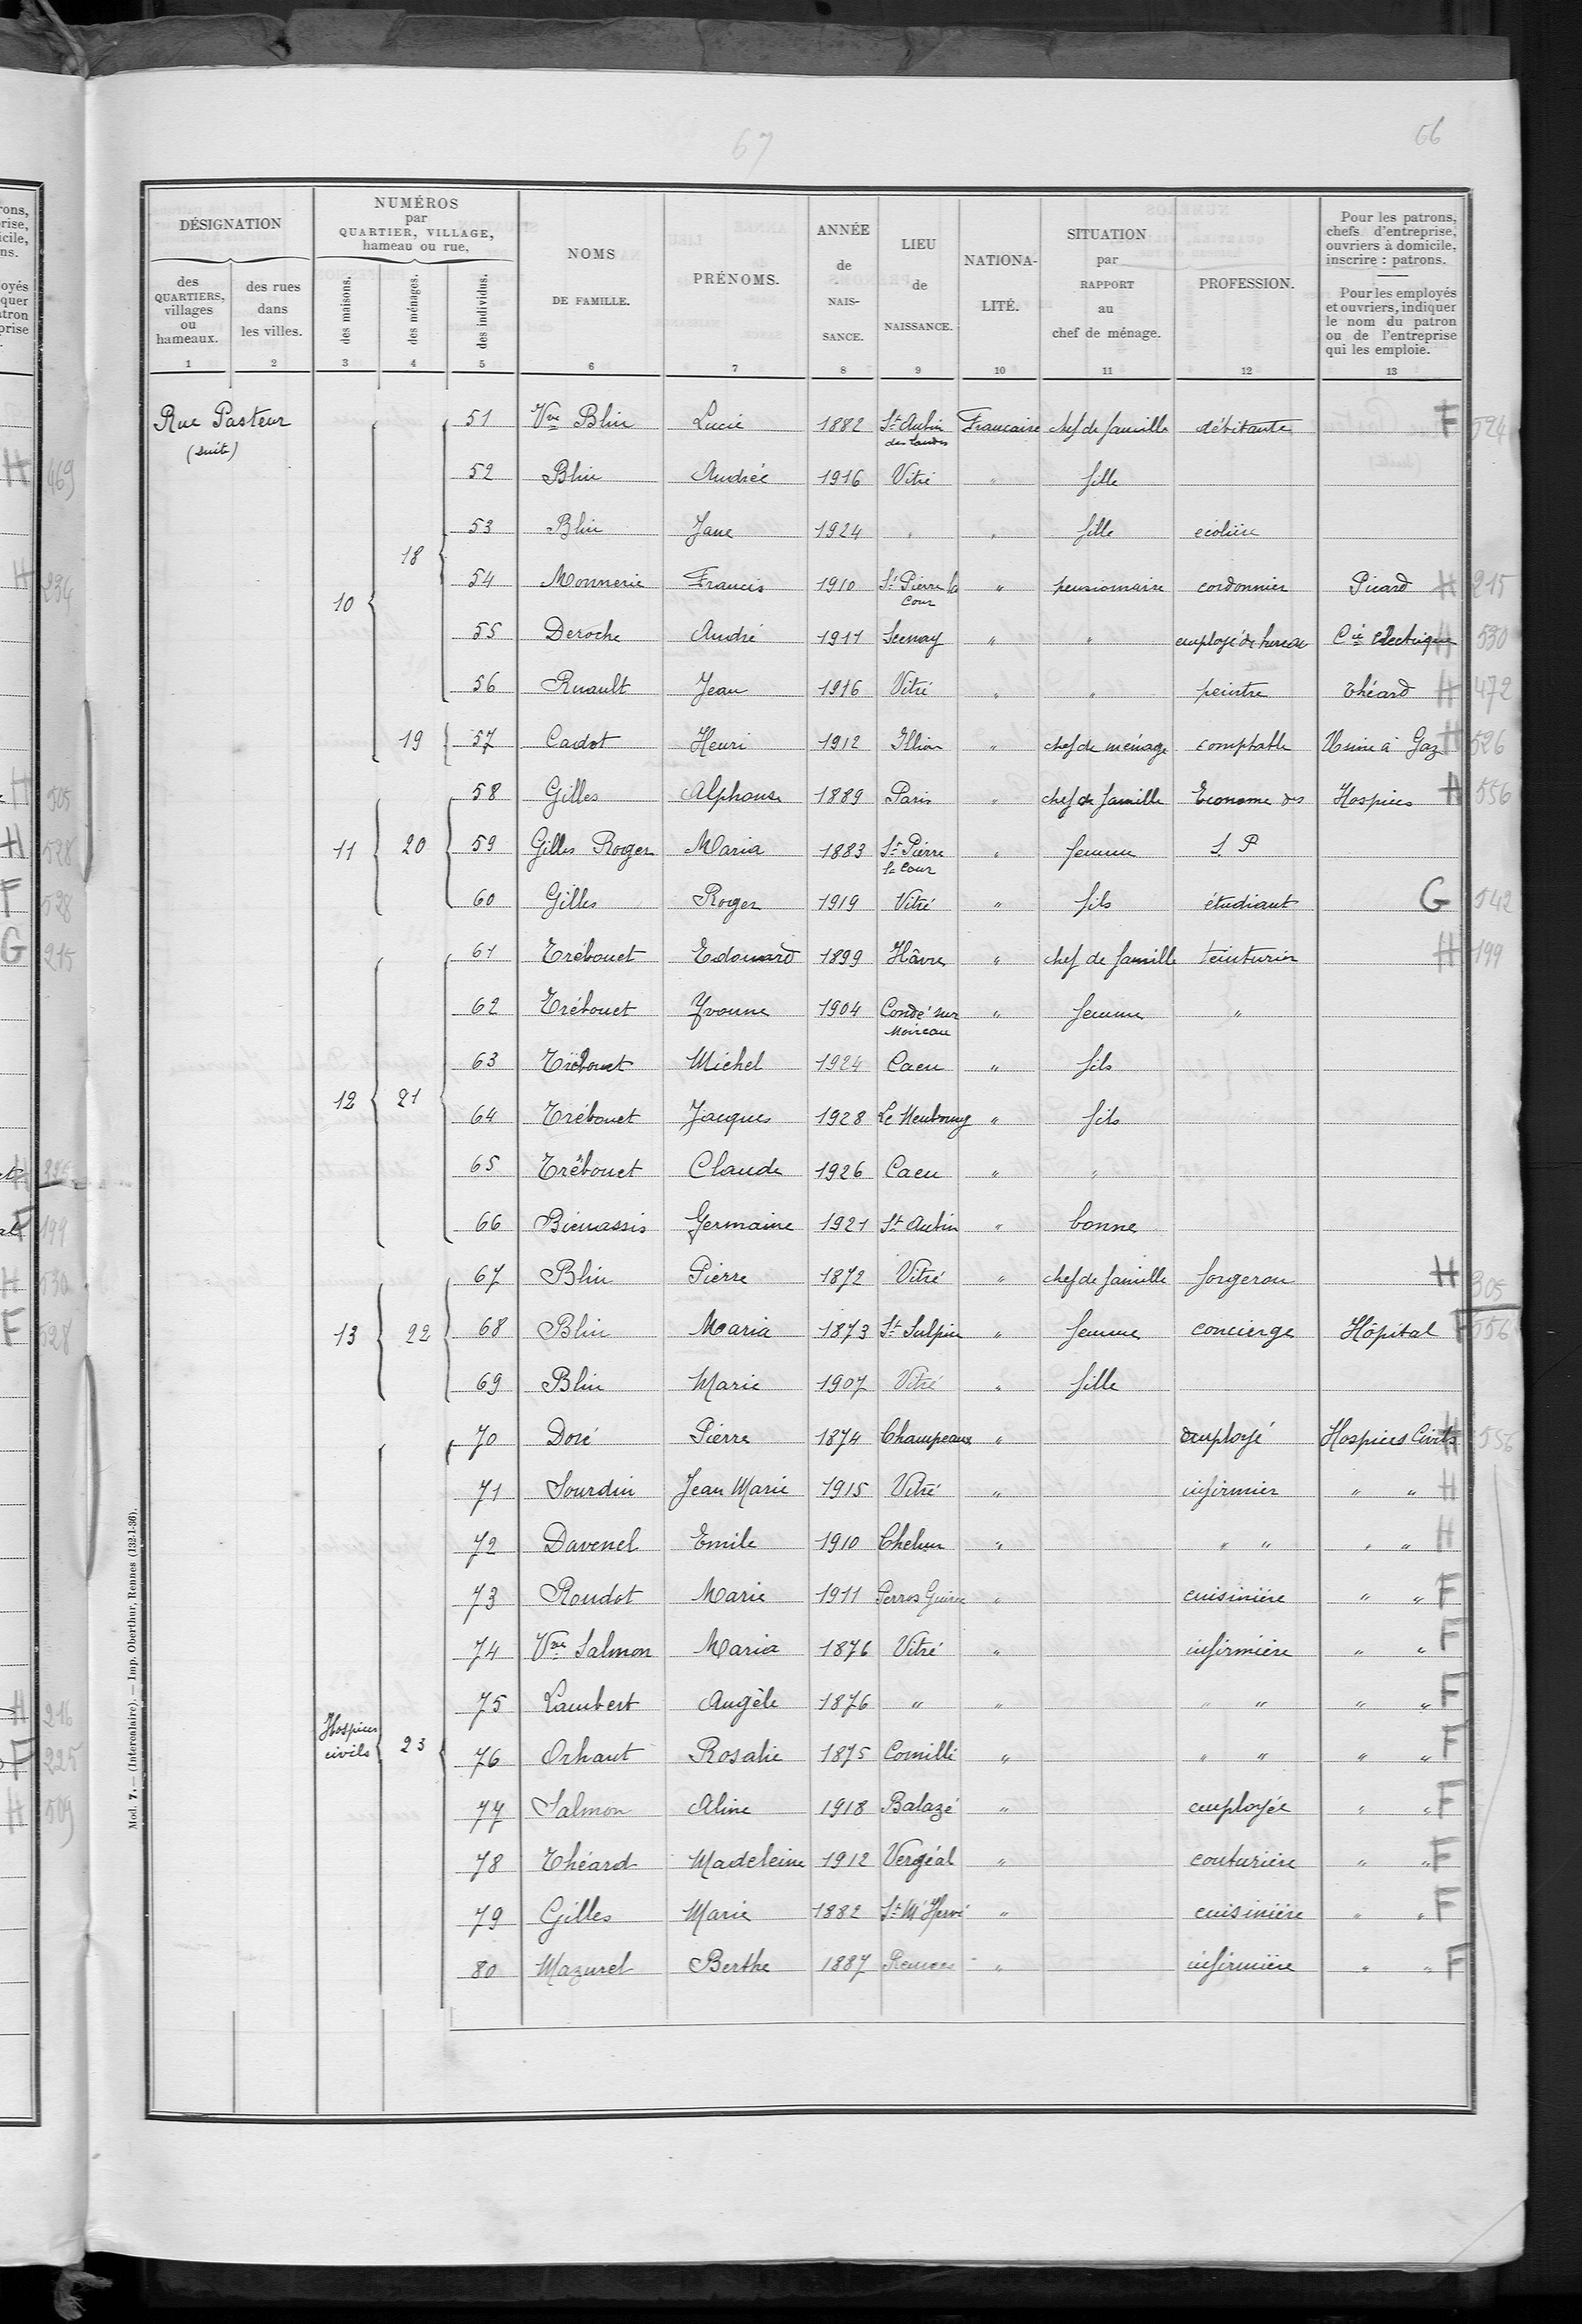 67
66
DÉSIGNATION
des QUARTIERS, villages ou hameaux.
des rues dans les villes.
NUMÉROS par QUARTIER, VILLAGE, hameau ou rue,
des maisons.
des ménages.
des individus.
NOMS DE FAMILLE.
PRÉNOMS.
ANNÉE de NAIS- SANCE.
LIEU de NAISSANCE.
NATIONA- LITÉ.
SITUATION par RAPPORT au chef de ménage.
PROFESSION.
Pour les patrons, chefs d'entreprise, ouvriers à domicile, inscrire : patrons.
Pour les employés et ouvriers, indiquer le nom du patron ou de l'entreprise qui les emploie.
1 2 3 4 5 6 7 8 9 10 11 12 13
Rue Pasteur (suite)
10 18 51 Vve Blin Lucie 1882 St Aubin des Landes Francaise chef de famille débitante F 524
52 Blin Andrée 1916 Vitré " fille
53 Blin Jane 1924 " " fille ecolière
54 Monnerie Francis 1910 St Pierre la Cour " pensionnaire cordonnier Picard H 215
55 Deroche André 1911 " " employé de bureau Cie Electrique H 530
56 Ruault Jean 1916 Vitré " " peintre Théard H 472
19 57 Cadot Henri 1912 " chef de ménage comptable Usine à Gaz H 526
11 20 58 Gilles Alphonse 1889 Paris " chef de famille Econome des Hospices H 556
59 Gilles Roger Maria 1883 St Pierre la Cour " femme S. P
60 Gilles Roger 1919 Vitré " fils étudiant G 542
12 21 61 Trébouet Edouard 1899 Hâvre " chef de famille teinturier H 199
62 Trébouet Yvonne 1904 Condé sur Noireau " femme "
63 Trébouet Michel 1924 Caen " fils
64 Trébouet Jacques 1928 Le Neubourg " fils
65 Trébouet Claude 1926 Caen " "
66 Bienassis Germaine 1921 St Aubin " bonne
13 22 67 Blin Pierre 1872 Vitré " chef de famille forgeron H 305
68 Blin Maria 1873 St Sulpice " femme concierge Hôpital F 556
69 Blin Marie 1907 Vitré " fille
Hospices civils 23 70 Doré Pierre 1874 Champeaux " employé Hospices Civils H 556
71 Sourdin Jean Marie 1915 Vitré " infirmier " " H
72 Davenel Emile 1910 Chelun " " " " " H
73 Roudot Marie 1911 Perros Guirec " cuisinière " " F
74 Vve Salmon Maria 1876 Vitré " infirmière " " F
75 Lambert Angèle 1876 " " " " " " F
76 Orhant Rosalie 1875 Cornillé " " " " " F
77 Salmon Aline 1918 Balazé " employée " " F
78 Théard Madeleine 1912 Vergéal " couturière " " F
79 Gilles Marie 1882 St M' Hervé " cuisinière " " F
80 Mazurel Berthe 1887 Rennes " infirmière " " F
Mod. 7. — (Intercalaire). — Imp. Oberthur, Rennes (132-1-36).